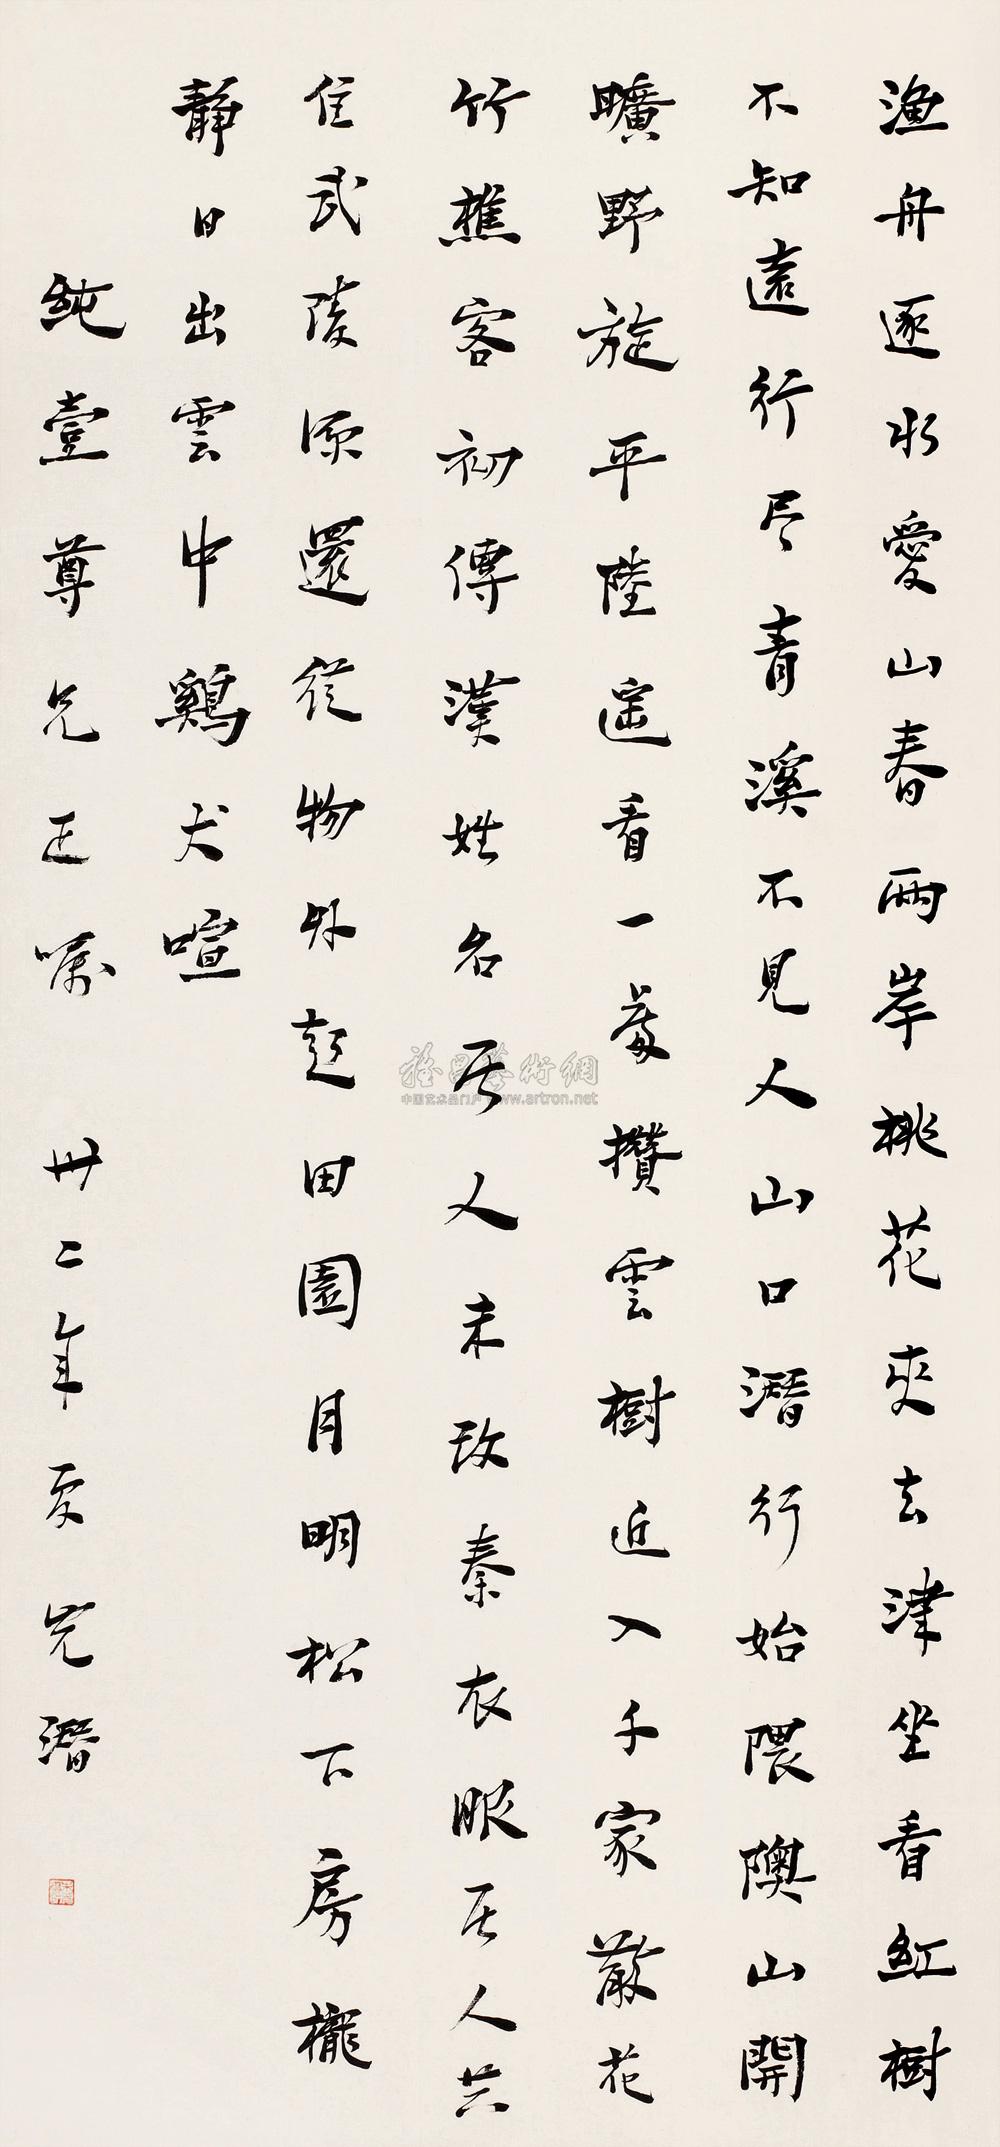 漁舟逐水愛山春兩岸桃花夾去津坐看紅樹
不知遠行尽青溪不見人山口潛行始隈隩山開
曠野旋平陸遥看一處攢雲樹近入千家散花
竹樵客初傳漢姓名居人未改秦衣服居人共
住武陵源還從物外起田園月明松下房櫳
靜日出雲中鷄犬喧
純壹尊兄正嘱 卅二年夏 光潛
雅昌藝術網
中国艺术品门户 www.artron.net